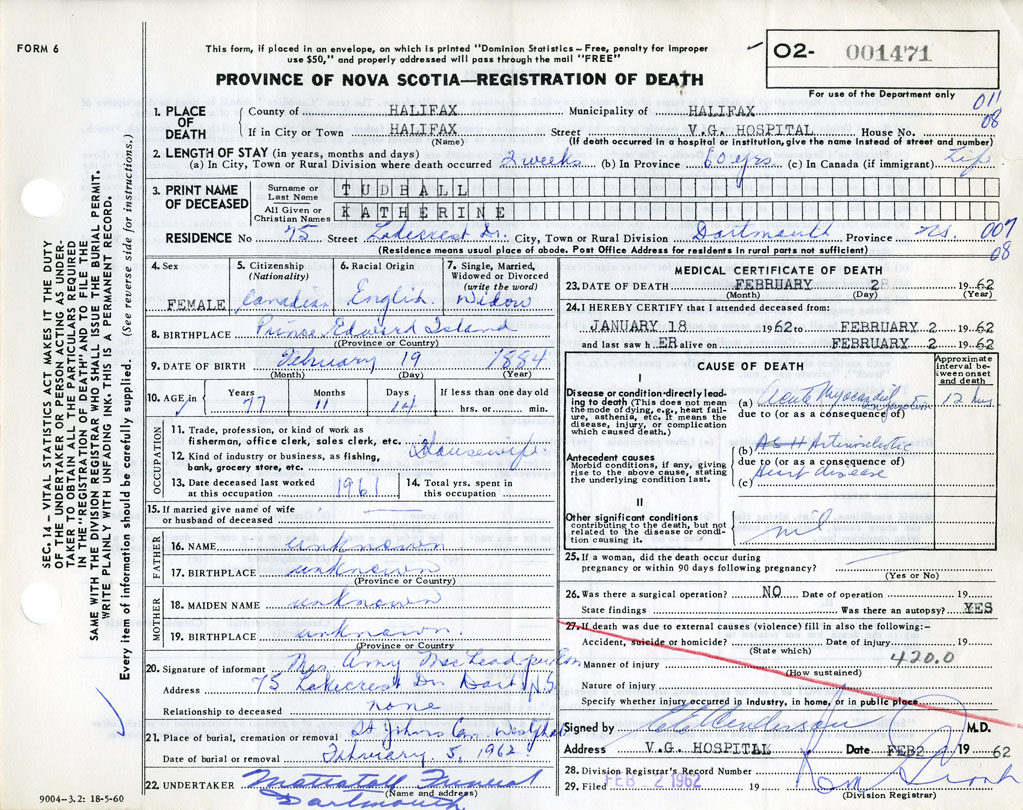 FORM 6
This form, if placed in an envelope, on which is printed "Dominion Statistics – Free, penalty for improper
use $50," and properly addressed will pass through the mail "FREE"
PROVINCE OF NOVA SCOTIA—REGISTRATION OF DEATH
O2- 001471
For use of the Department only
011
08
1. PLACE OF DEATH
County of HALIFAX Municipality of HALIFAX
If in City or Town HALIFAX Street V.G. HOSPITAL House No.
(Name) (If death occurred in a hospital or institution, give name instead of street and number)
2. LENGTH OF STAY (in years, months and days)
(a) In City, Town or Rural Division where death occurred 2 weeks (b) In Province 60 yrs (c) In Canada (if immigrant) Life
3. PRINT NAME OF DECEASED
Surname or Last Name TUDBALL
All Given or Christian Names KATHERINE
RESIDENCE No 75 Street Lakecrest Dr. City, Town or Rural Division Dartmouth Province N.S. 007
08
(Residence means usual place of abode. Post Office Address for residents in rural parts not sufficient)
4. Sex FEMALE
5. Citizenship (Nationality) Canadian
6. Racial Origin English
7. Single, Married, Widowed or Divorced (write the word) Widow
8. BIRTHPLACE Prince Edward Island
(Province or Country)
9. DATE OF BIRTH February 19 1884
(Month) (Day) (Year)
10. AGE in Years 77 Months 11 Days 14 If less than one day old hrs. or min.
OCCUPATION
11. Trade, profession, or kind of work as
fisherman, office clerk, sales clerk, etc.
12. Kind of industry or business, as fishing,
bank, grocery store, etc. Housewife
13. Date deceased last worked
at this occupation 1961
14. Total yrs. spent in
this occupation
15. If married give name of wife
or husband of deceased
FATHER
16. NAME unknown
17. BIRTHPLACE unknown
(Province or Country)
MOTHER
18. MAIDEN NAME unknown
19. BIRTHPLACE unknown.
(Province or Country)
20. Signature of informant Mrs. Amy MacLead
Address 75 Lakecrest Dr. Dart, N.S.
Relationship to deceased none
21. Place of burial, cremation or removal St Johns Cem Westphal
Date of burial or removal February 5, 1962
22. UNDERTAKER Mattatall Funeral
(Name and address)
Dartmouth
9004–3.2: 18-5-60
MEDICAL CERTIFICATE OF DEATH
23. DATE OF DEATH FEBRUARY 2 1962
(Month) (Day) (Year)
24. I HEREBY CERTIFY that I attended deceased from:
JANUARY 18 1962 to FEBRUARY 2 1962
and last saw h ER alive on FEBRUARY 2 1962
CAUSE OF DEATH
Approximate interval between onset and death
I
Disease or condition directly leading to death (This does not mean the mode of dying, e.g., heart failure, asthenia, etc. It means the disease, injury, or complication which caused death.)
(a) Acute Myocardial Infarction 12 hrs
due to (or as a consequence of)
Antecedent causes
Morbid conditions, if any, giving rise to the above cause, stating the underlying condition last.
(b) ASH Arteriosclerotic
due to (or as a consequence of)
(c) Heart disease
II
Other significant conditions
contributing to the death, but not related to the disease or condition causing it.
nil
25. If a woman, did the death occur during
pregnancy or within 90 days following pregnancy?
(Yes or No)
26. Was there a surgical operation? NO Date of operation 19
State findings Was there an autopsy? YES
27. If death was due to external causes (violence) fill in also the following:–
Accident, suicide or homicide? Date of injury 19
(State which)
420.0
Manner of injury
(How sustained)
Nature of injury
Specify whether injury occurred in Industry, in home, or in public place
Signed by Henderson M.D.
Address V.G. HOSPITAL Date FEB 2 19 62
28. Division Registrar's Record Number
29. Filed FEB 2 1962 19
(Division Registrar)
SEC. 14 – VITAL STATISTICS ACT MAKES IT THE DUTY
OF THE UNDERTAKER OR PERSON ACTING AS UNDER-
TAKER TO OBTAIN ALL THE PARTICULARS REQUIRED
IN THE "REGISTRATION OF DEATH" AND TO FILE THE
SAME WITH THE DIVISION REGISTRAR WHO SHALL ISSUE THE BURIAL PERMIT.
WRITE PLAINLY WITH UNFADING INK. THIS IS A PERMANENT RECORD.
Every item of information should be carefully supplied. (See reverse side for instructions.)